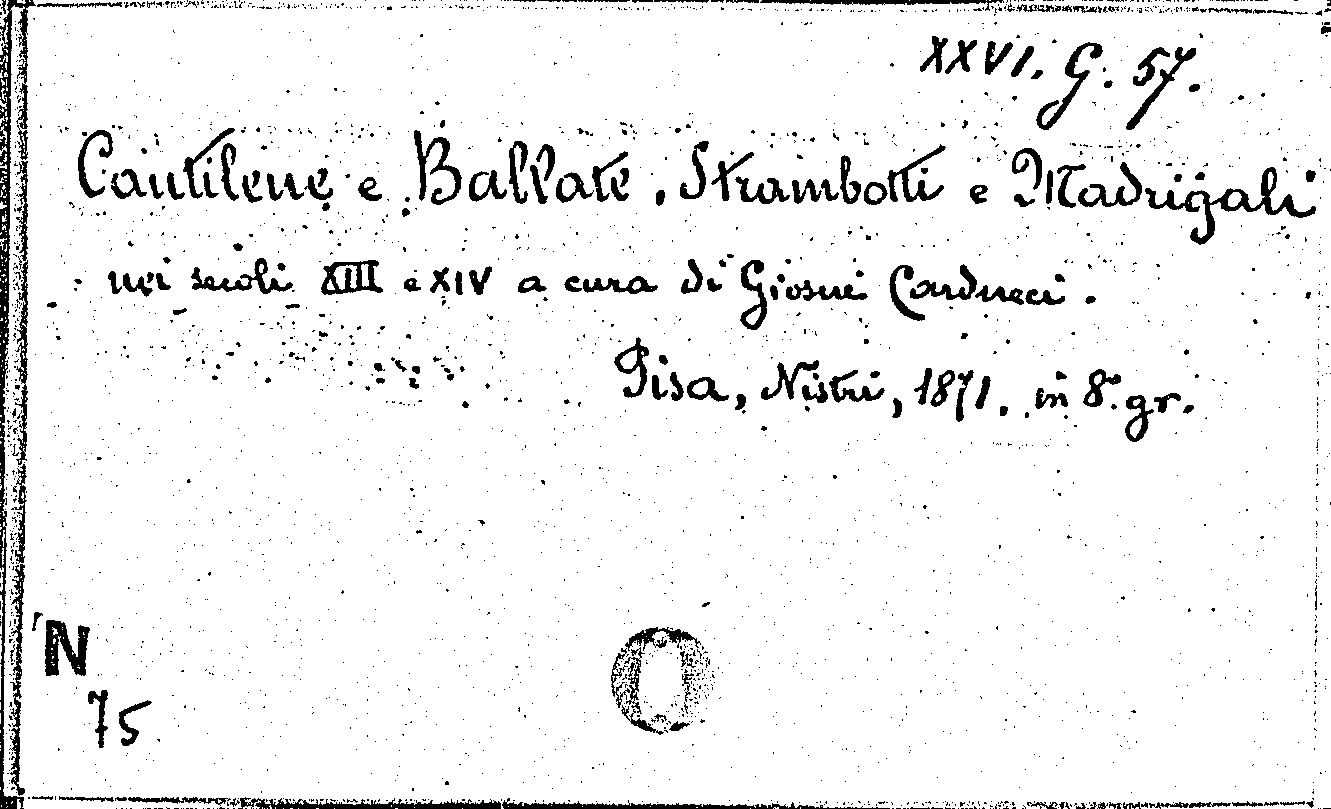 XXVI. G. 57.
Cantilene e Ballate, Strambotti e Madrigali
nei secoli XIII e XIV a cura di Giosuè Carducci.
Pisa, Nistri, 1871. in 8° gr.
N
75